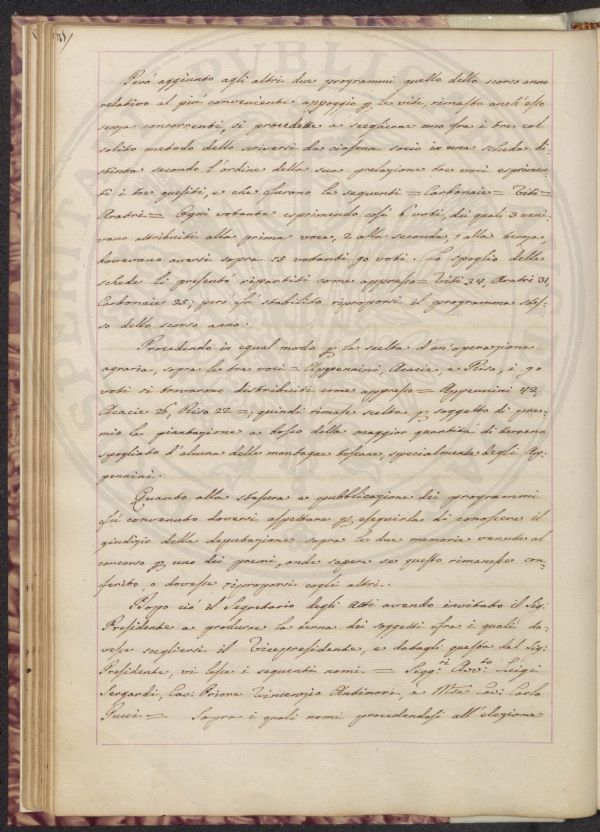 Però aggiunto agli altri due programmi quello dello scorso anno
relativo al più conveniente appoggio p. le viti, rimasto anch'esso
senza concorrenti, si procedette a scegliere uno fra i tre col
solito metodo dello scriversi da ciascun socio in una scheda di-
stinta secondo l'ordine della sua prelazione tre voci esprimen-
ti i tre quesiti, e che furono le seguenti = Carbonaie = Viti =
Aratri = Ogni votante esprimendo così 6 voti, dei quali 3 veni-
vano attribuiti alla prima voce, 2 alla seconda, 1 alla terza,
dovevano aversi sopra 15 votanti 90 voti. Lo spoglio delle
schede li presentò ripartiti come appresso = Viti 34, Aratri 31,
Carbonaie 25; però fù stabilito riproporsi il programma stes-
so dello scorso anno.
Procedendo in egual modo p. la scelta d'un'operazione
agraria, sopra le tre voci = Appennini, Acacie, e Riso, i 90
voti si trovarono distribuiti come appresso = Appennini 42,
Acacie 26, Riso 22 =, quindi rimase scelta p. soggetto di pre-
mio la piantazione a bosco della maggior quantità di terreno
spogliato d'alcuna delle montagne toscane, specialmente degli Ap-
pennini.
Quanto alla stesura e pubblicazione dei programmi
fù convenuto doversi aspettare p. eseguirla di conoscere il
giudizio della deputazione sopra le due memorie venute al
concorso p. uno dei premi, onde sapere se questo rimanesse con-
ferito, o dovesse riproporsi cogli altri.
Dopo ciò il Segretario degli Atti avendo invitato il Sig.
Presidente a produrre la terna dei soggetti fra i quali do-
vesse scegliersi il Vicepresidente, e datagli questa dal Sig.
Presidente, vi lesse i seguenti nomi. = Sigg.ri Avv.to Luigi
Sergardi, Cav: Priore Vincenzio Antinori, e March. Cav: Carlo
Pucci = Sopra i quali nomi procedendosi all'elezione